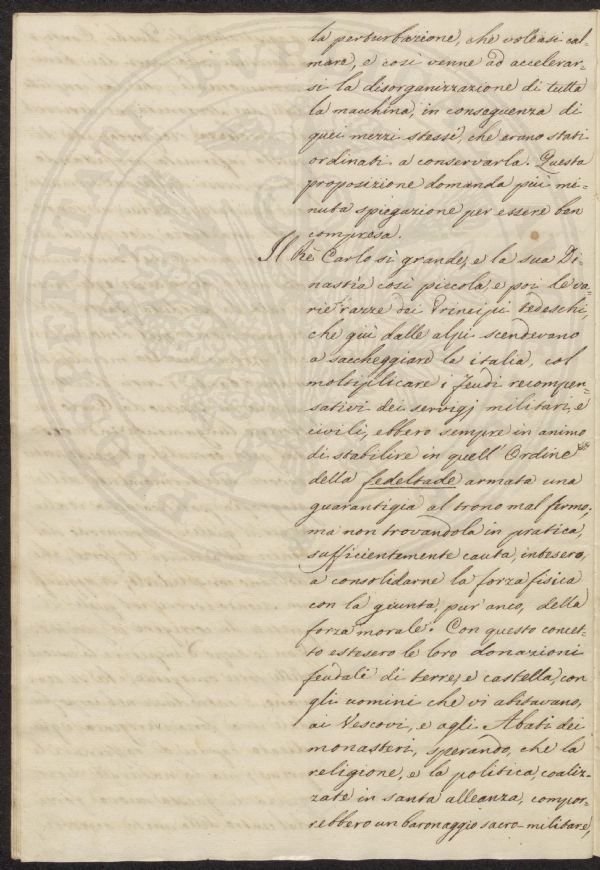 la perturbazione, che voleasi cal-
mare, e così venne ad accelerar-
si la disorganizzazione di tutta
la macchina, in conseguenza di
quei mezzi stessi, che erano stati
ordinati a conservarla. Questa
proposizione domanda più mi-
nuta spiegazione per essere ben
compresa.
Il Rè Carlo si grande, e la sua Di-
nastia così piccola, e poi le va-
rie razze dei Principi tedeschi,
che giù dalle alpi scendevano
a saccheggiare la italia, col
moltiplicare i feudi recompen-
sativi dei servigj militari, e
civili, ebbero sempre in animo
di stabilire in quell'Ordine
della fedeltade armata una
guarantigia al trono mal fermo;
ma non trovandola in pratica,
sufficientemente cauta, intesero,
a consolidarne la forza fisica
con la giunta, pur'anco, della
forza morale. Con questo concet-
to estesero le loro donazioni
feudali di terre, e castella, con
gli uomini che vi abitavano,
ai Vescovi, e agli Abati dei
monasteri, sperando, che la
religione, e la politica, coaliz-
zate in santa alleanza, compor-
rebbero un baronaggio sacro-militare,